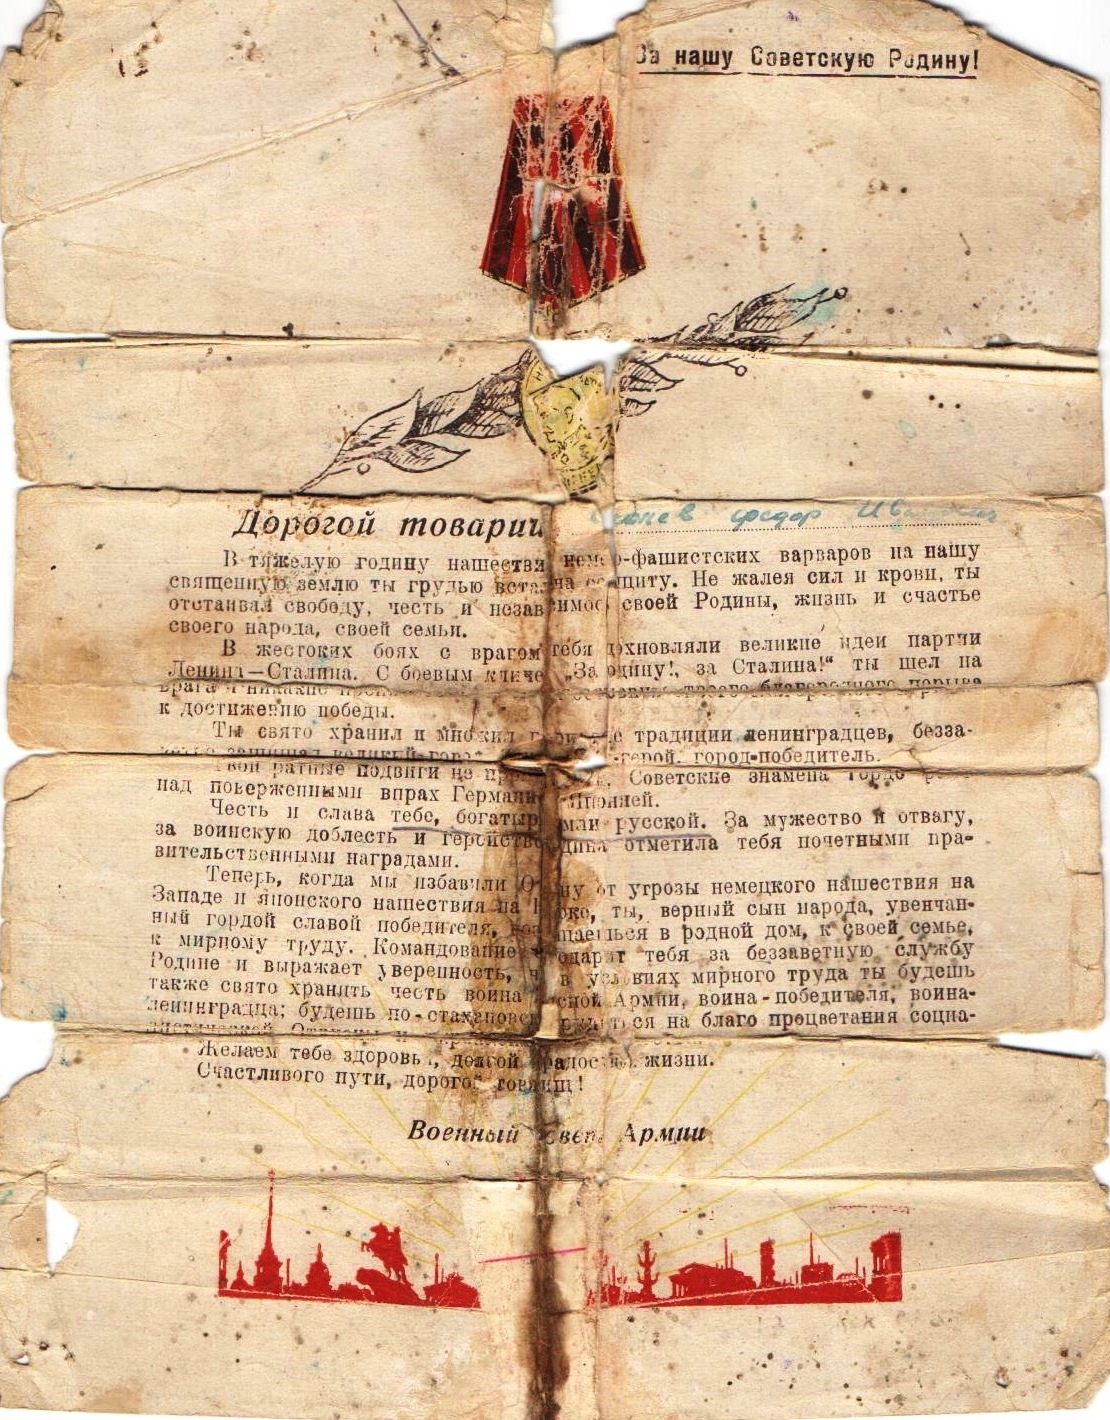 За нашу Советскую Родину!
Дорогой товарищ федор
В тяжелую годину нашествия немецко-фашистских варваров на нашу
священную землю ты грудью встал на защиту. Не жалея сил и крови, ты
отстаивал свободу, честь и независимость своей Родины, жизнь и счастье
своего народа, своей семьи.
В жестоких боях с врагом тебя вдохновляли великие идеи партии
Ленина—Сталина. С боевым кличем „За Родину!, за Сталина!“ ты шел на
врага и никакие твоего благородного порыва
к достижению победы.
Ты свято хранил и множил традиции ленинградцев, безза-
защищал великий город-герой, город-победитель.
Твои ратные подвиги не Советские знамена гордо
над поверженными впрах Германией Японией.
Честь и слава тебе, богатырь земли русской. За мужество и отвагу,
за воинскую доблесть и геройство Родина отметила тебя почетными пра-
вительственными наградами.
Теперь, когда мы избавили Отчизну от угрозы немецкого нашествия на
Западе и японского нашествия на Востоке, ты, верный сын народа, увенчан-
ный гордой славой победителя, возвращаешься в родной дом, к своей семье,
к мирному труду. Командование благодарит тебя за беззаветную службу
Родине и выражает уверенность, что в условиях мирного труда ты будешь
также свято хранить честь воина Красной Армии, воина-победителя, воина-
ленинградца; будешь по-стахановски трудиться на благо процветания социа-
листической Отчизны и
Желаем тебе здоровья, долгой радостной жизни.
Счастливого пути, дорогой товарищ!
Военный Совет Армии